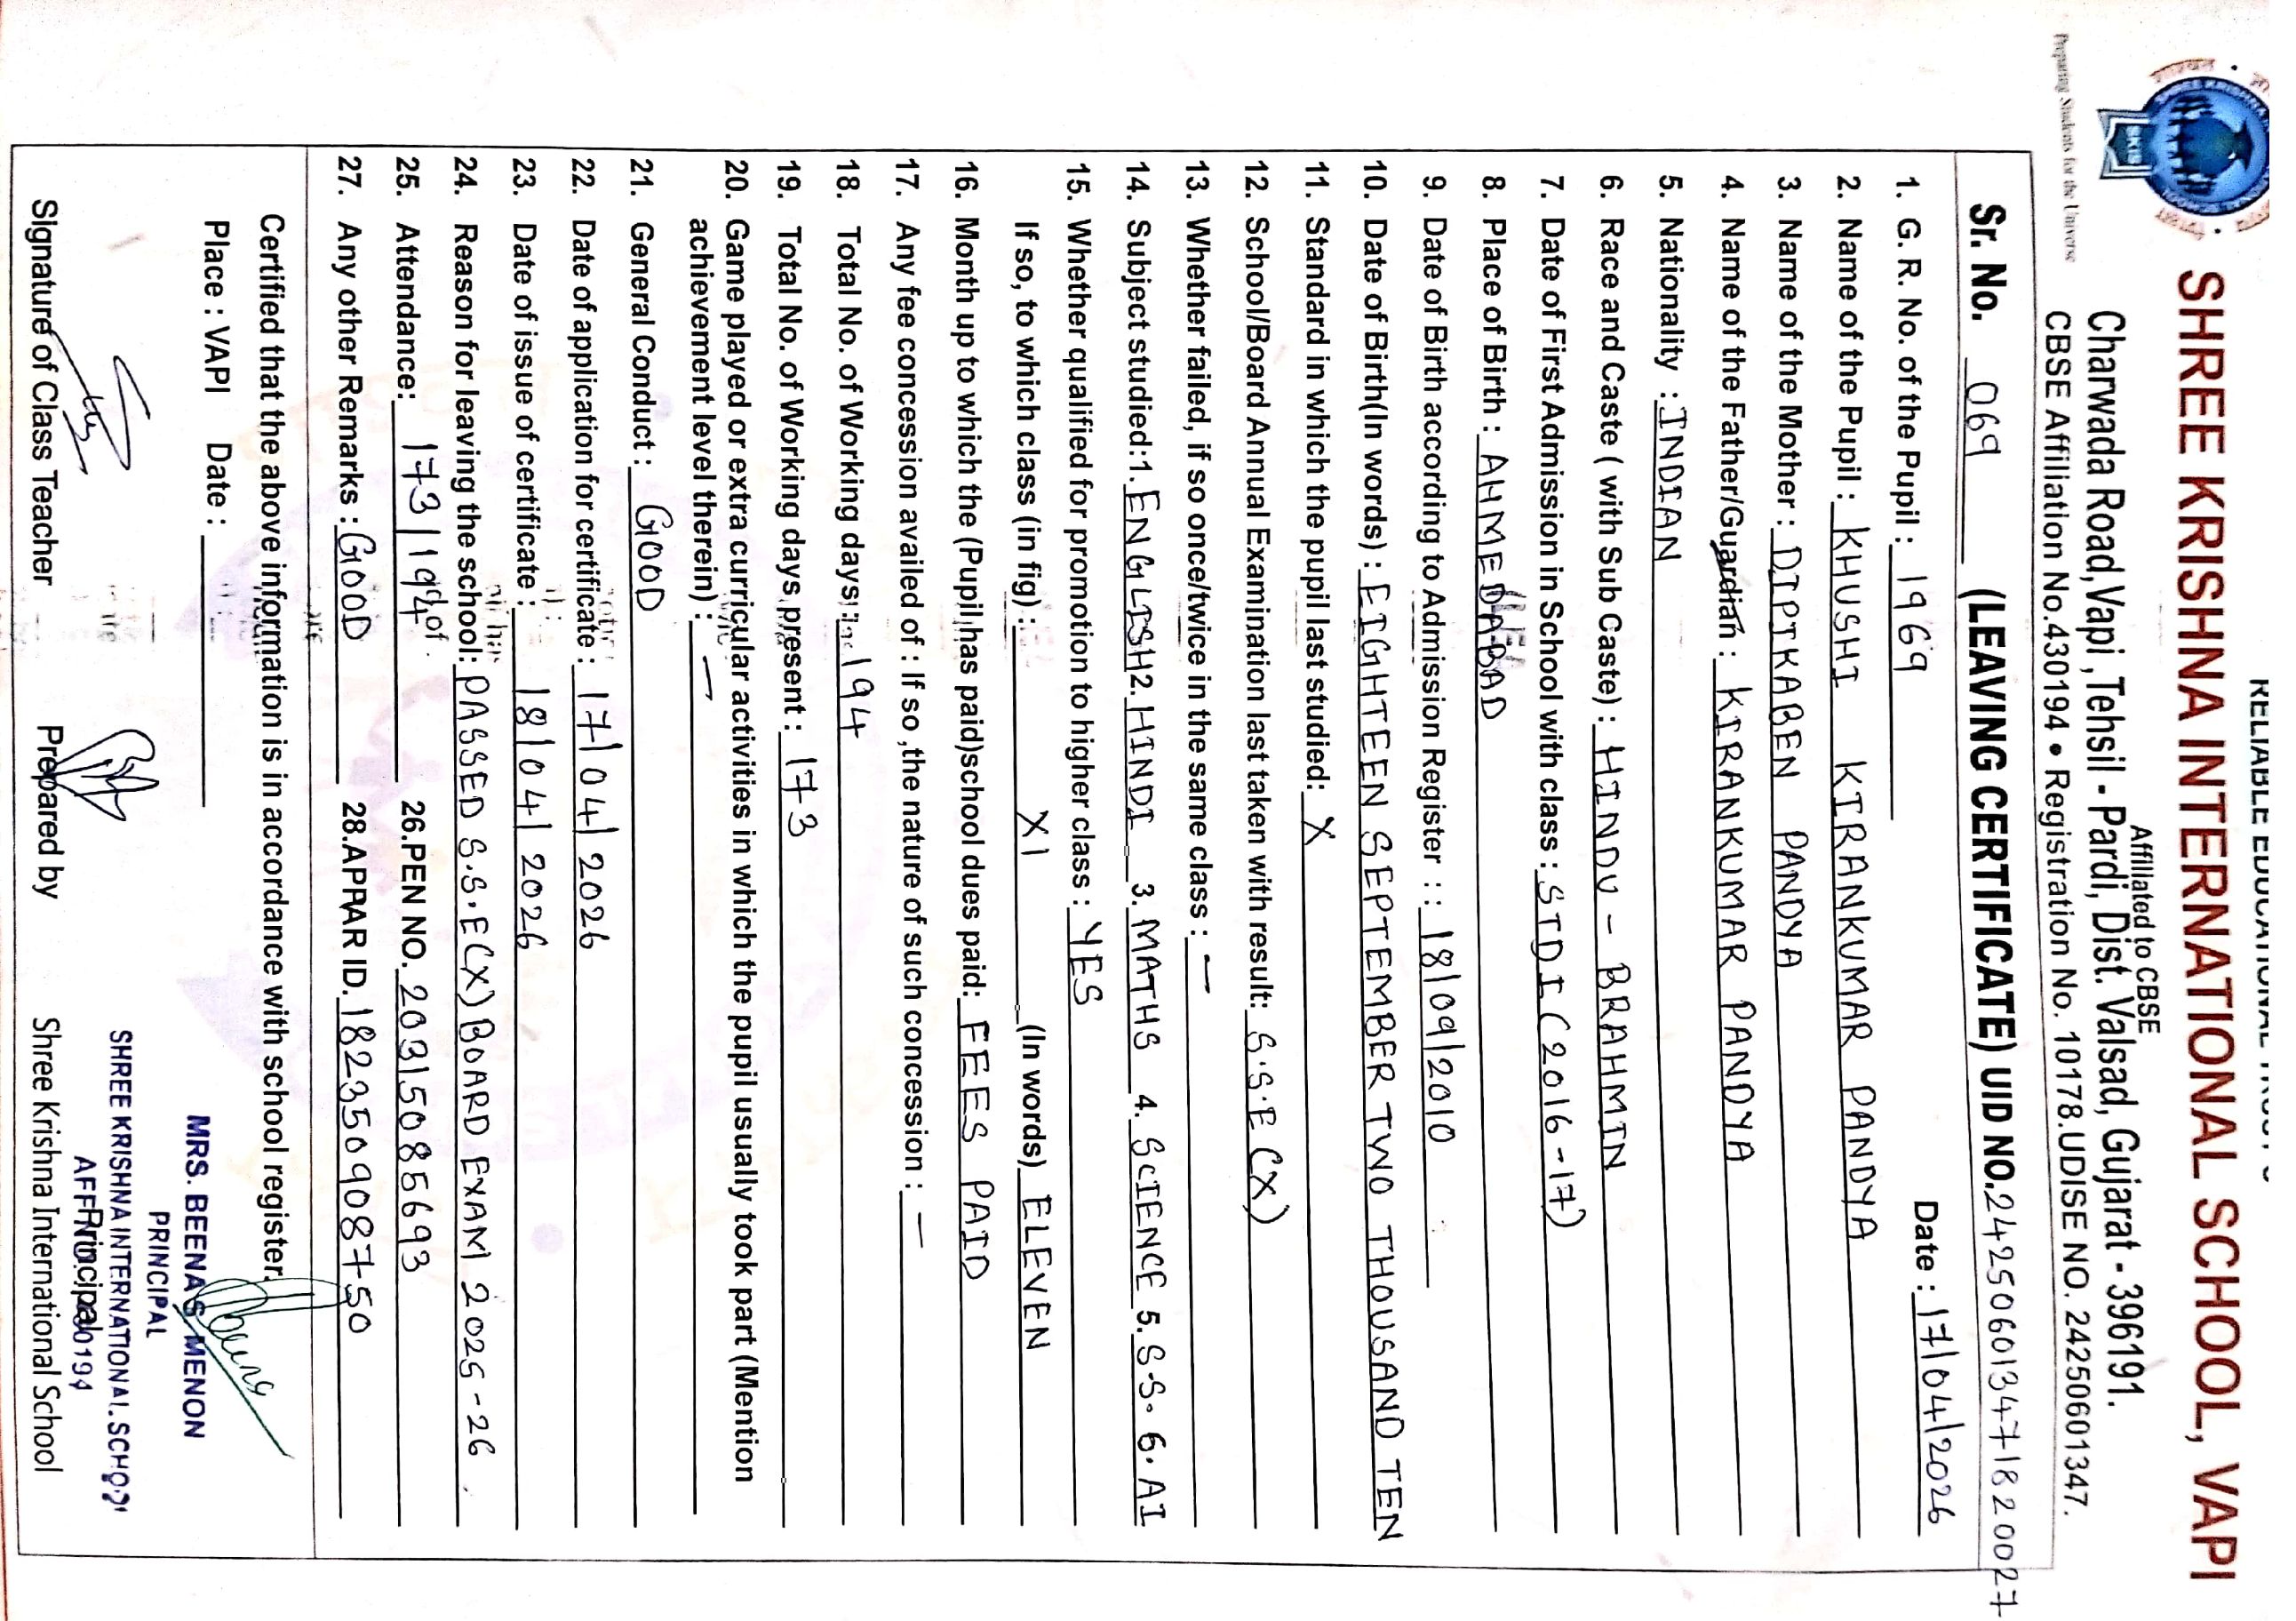 RELIABLE EDUCATIONAL TRUST'S
SHREE KRISHNA INTERNATIONAL SCHOOL, VAPI
Affiliated to CBSE
Charwada Road, Vapi, Tehsil - Pardi, Dist. Valsad, Gujarat - 396191.
CBSE Affiliation No.430194 • Registration No. 10178.UDISE NO. 24250601347.
SKIS
Preparing Students for the Universe
Sr. No. 069 (LEAVING CERTIFICATE) UID NO.242506013471820027
Date : 17/04/2026
1. G. R. No. of the Pupil : 1969
2. Name of the Pupil : KHUSHI KIRANKUMAR PANDYA
3. Name of the Mother : DIPTKABEN PANDYA
4. Name of the Father/Guardian : KIRANKUMAR PANDYA
5. Nationality : INDIAN
6. Race and Caste ( with Sub Caste) : HINDU - BRAHMIN
7. Date of First Admission in School with class : STD I (2016-17)
8. Place of Birth : AHMEDABAD
9. Date of Birth according to Admission Register : : 18/09/2010
10. Date of Birth(In words) : EIGHTEEN SEPTEMBER TWO THOUSAND TEN
11. Standard in which the pupil last studied: X
12. School/Board Annual Examination last taken with result: S.S.E (X)
13. Whether failed, if so once/twice in the same class : —
14. Subject studied:1. ENGLISH 2. HINDI 3. MATHS 4. SCIENCE 5. S.S. 6. AI
15. Whether qualified for promotion to higher class : YES
If so, to which class (in fig) : XI (In words) ELEVEN
16. Month up to which the (Pupil has paid)school dues paid: FEES PAID
17. Any fee concession availed of : If so ,the nature of such concession : —
18. Total No. of Working days: 194
19. Total No. of Working days present : 173
20. Game played or extra curricular activities in which the pupil usually took part (Mention
achievement level therein) : —
21. General Conduct : GOOD
22. Date of application for certificate : 17/04/2026
23. Date of issue of certificate : 18/04/2026
24. Reason for leaving the school: PASSED S.S.E(X) BOARD EXAM 2025-26.
25. Attendance: 173/194 26.PEN NO. 20315085693
27. Any other Remarks : GOOD 28.APPAR ID. 182350908750
Certified that the above information is in accordance with school register.
Place : VAPI Date :
MRS. BEENA S MENON
PRINCIPAL
SHREE KRISHNA INTERNATIONAL SCHOOL
Principal
Signature of Class Teacher Prepared by Shree Krishna International School